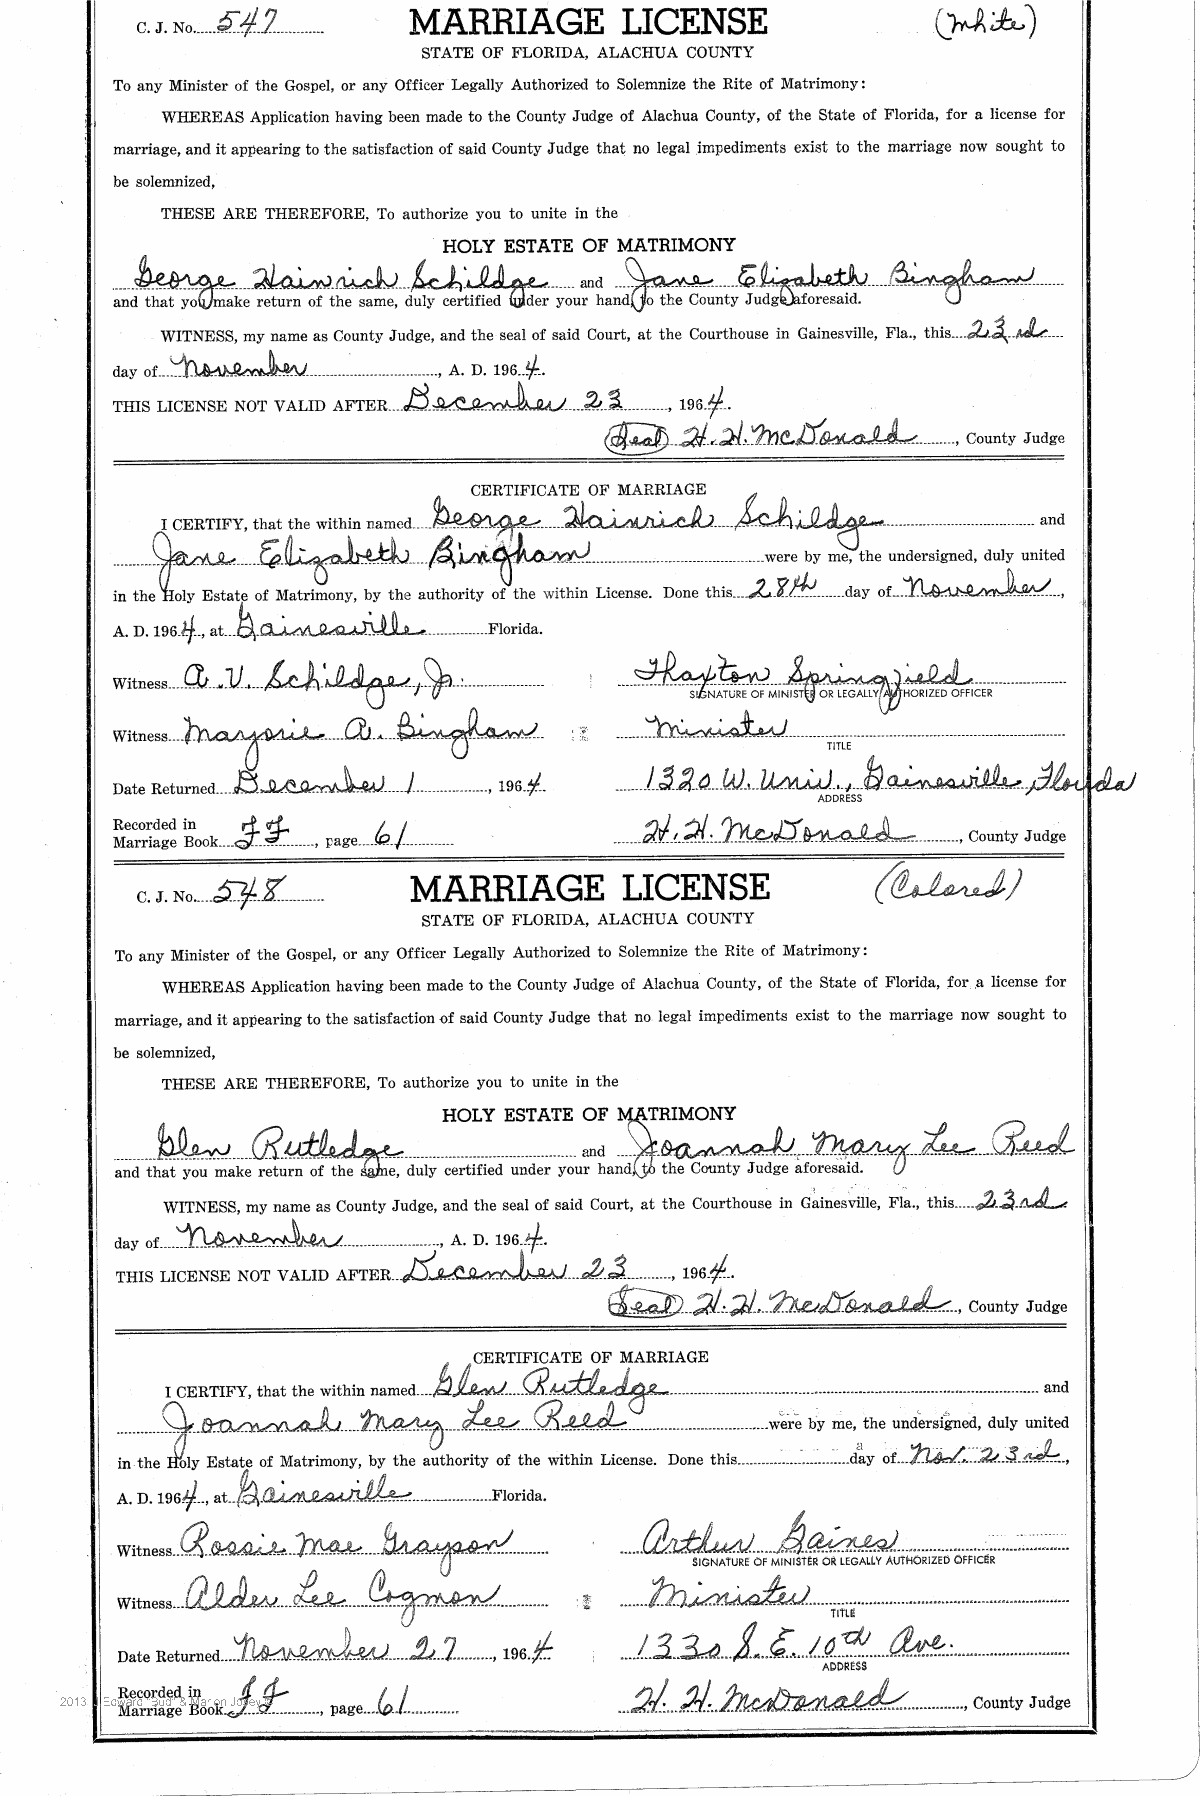 C. J. No. 547 MARRIAGE LICENSE (White)
STATE OF FLORIDA, ALACHUA COUNTY
To any Minister of the Gospel, or any Officer Legally Authorized to Solemnize the Rite of Matrimony:
WHEREAS Application having been made to the County Judge of Alachua County, of the State of Florida, for a license for
marriage, and it appearing to the satisfaction of said County Judge that no legal impediments exist to the marriage now sought to
be solemnized,
THESE ARE THEREFORE, To authorize you to unite in the
HOLY ESTATE OF MATRIMONY
George Hainrich Schildge and Jane Elizabeth Bingham
and that you make return of the same, duly certified under your hand, to the County Judge aforesaid.
WITNESS, my name as County Judge, and the seal of said Court, at the Courthouse in Gainesville, Fla., this 23rd
day of November, A. D. 1964.
THIS LICENSE NOT VALID AFTER December 23, 1964.
(Seal) H. H. McDonald, County Judge
CERTIFICATE OF MARRIAGE
I CERTIFY, that the within named George Hainrich Schildge and
Jane Elizabeth Bingham were by me, the undersigned, duly united
in the Holy Estate of Matrimony, by the authority of the within License. Done this 28th day of November,
A. D. 1964, at Gainesville Florida.
Witness A. V. Schildge, Jr. Thaxton Springfield
SIGNATURE OF MINISTER OR LEGALLY AUTHORIZED OFFICER
Witness Marjorie A. Bingham Minister
TITLE
Date Returned December 1, 1964 1320 W. Univ., Gainesville, Florida
ADDRESS
Recorded in
Marriage Book FF, page 61 H. H. McDonald, County Judge
C. J. No. 548 MARRIAGE LICENSE (Colored)
STATE OF FLORIDA, ALACHUA COUNTY
To any Minister of the Gospel, or any Officer Legally Authorized to Solemnize the Rite of Matrimony:
WHEREAS Application having been made to the County Judge of Alachua County, of the State of Florida, for a license for
marriage, and it appearing to the satisfaction of said County Judge that no legal impediments exist to the marriage now sought to
be solemnized,
THESE ARE THEREFORE, To authorize you to unite in the
HOLY ESTATE OF MATRIMONY
Glen Rutledge and Joannah Mary Lee Reed
and that you make return of the same, duly certified under your hand, to the County Judge aforesaid.
WITNESS, my name as County Judge, and the seal of said Court, at the Courthouse in Gainesville, Fla., this 23rd
day of November, A. D. 1964.
THIS LICENSE NOT VALID AFTER December 23, 1964.
(Seal) H. H. McDonald, County Judge
CERTIFICATE OF MARRIAGE
I CERTIFY, that the within named Glen Rutledge and
Joannah Mary Lee Reed were by me, the undersigned, duly united
in the Holy Estate of Matrimony, by the authority of the within License. Done this day of Nov. 23rd,
A. D. 1964, at Gainesville Florida.
Witness Rossie Mae Grayson Arthur Gaines
SIGNATURE OF MINISTER OR LEGALLY AUTHORIZED OFFICER
Witness Alder Lee Cogmon Minister
TITLE
Date Returned November 27, 1964 1330 S. E. 10th Ave.
ADDRESS
Recorded in
2013 Edward "Bud" &
Marriage Book FF, page 61 H. H. McDonald, County Judge